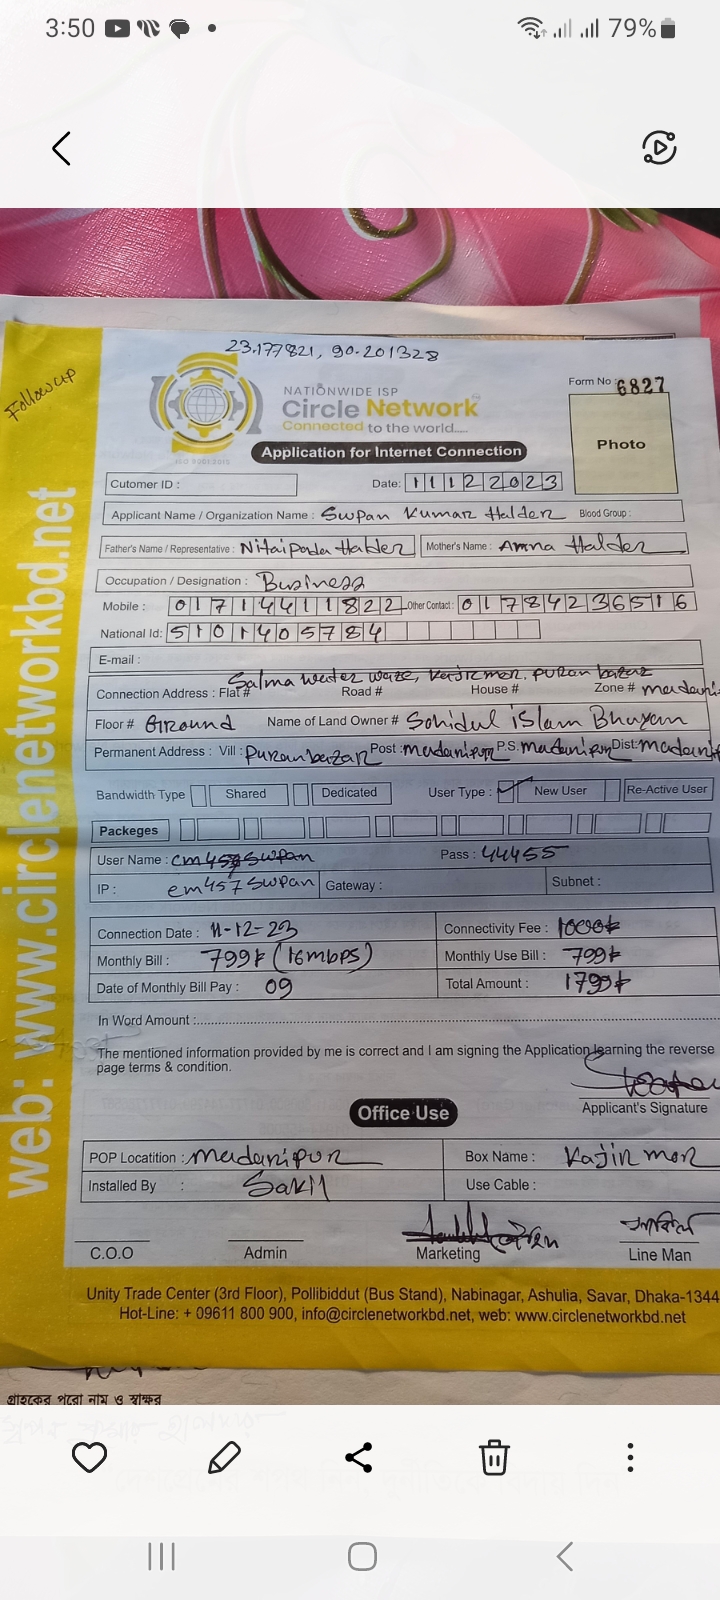 3:50 79%
23.177821, 90.201328
Follow up
NATIONWIDE ISP
Circle Network
Connected to the world.....
ISO 9001:2015
Form No : 6827
Photo
Application for Internet Connection
Cutomer ID : Date: 11122023
Applicant Name / Organization Name : Swpan Kumar Halder Blood Group :
Father's Name / Representative : Nitaipada Halder Mother's Name : Amna Halder
Occupation / Designation : Business
Mobile : 01714411822 Other Contact : 01784236516
National Id: 5101405784
E-mail :
Salma water waze, Kajir mor, puran bazar
Connection Address : Flat # Road # House # Zone # madari
Floor # Ground Name of Land Owner # Sohidul islam Bhuyam
Permanent Address : Vill : Puranbazar Post : madaripur P.S. madaripur Dist: madarip
Bandwidth Type Shared Dedicated User Type : ✓ New User Re-Active User
Packeges
User Name : Pass : 44455
IP : em457swpan Gateway : Subnet :
Connection Date : 11-12-23 Connectivity Fee : 1000৳
Monthly Bill : 799৳ (16mbps) Monthly Use Bill : 799৳
Date of Monthly Bill Pay : 09 Total Amount : 1799৳
In Word Amount :
The mentioned information provided by me is correct and I am signing the Application learning the reverse
page terms & condition.
Applicant's Signature
Office Use
POP Locatition : madaripur Box Name : Kajir mor
Installed By : Sakil Use Cable :
C.O.O Admin Marketing Line Man
Unity Trade Center (3rd Floor), Pollibiddut (Bus Stand), Nabinagar, Ashulia, Savar, Dhaka-1344
Hot-Line: + 09611 800 900, info@circlenetworkbd.net, web: www.circlenetworkbd.net
web: www.circlenetworkbd.net
গ্রাহকের পুরো নাম ও স্বাক্ষর